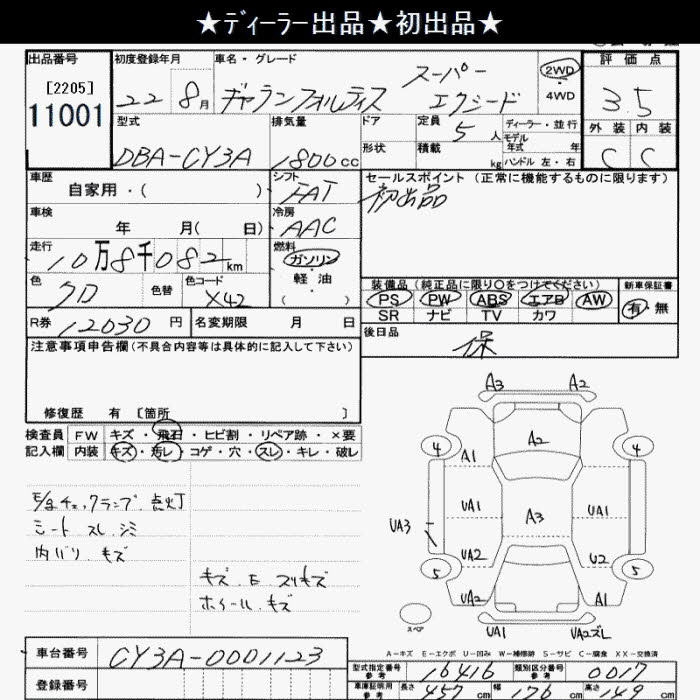 ★ディーラー出品★初出品★
出品番号
[2205]
11001
初度登録年月
22 8月
車名・グレード
ギャランフォルティス
スーパー
エクシード
2WD
4WD
評価点
3.5
外装 内装
C C
型式
DBA-CY3A
排気量
1800cc
ドア
形状
定員
5人
積載
kg
ディーラー・並行
モデル
年式 年
ハンドル 左・右
車歴
自家用・( )
シフト
FAT
セールスポイント (正常に機能するものに限ります)
初出品
車検
年 月( 日)
冷房
AAC
走行
10万8千082km
燃料
ガソリン
軽油
( )
色
クロ
色替
色コード
X42
装備品(純正品に限り○をつけてください)
PS PW ABS エアB AW
SR ナビ TV カワ
新車保証書
有・無
R券 12030円
名変期限 月 日
後日品
保
注意事項申告欄(不具合内容等は具体的に記入して下さい)
修復歴 有 [箇所 ]
検査員
記入欄
FW キズ・飛石・ヒビ割・リペア跡・×要
内装 キズ・汚レ・コゲ・穴・スレ・キレ・破レ
E/gチェックランプ 点灯
シート スレ シミ
内バリ キズ
キズ.E.スリキズ
ホイール.キズ
A3 A2
4 A2 4
A1
UA1 UA1
UA3 A3
UA2 U2
5 5
UA2 A1
スペア
UA1 UA2ズレ
A－キズ E－エクボ U－凹み W－補修跡 S－サビ C－腐食 XX－交換済
車台番号 CY3A-0001123
登録番号
型式指定番号
参考
16416
類別区分番号
参考
0017
車庫証明用
参考
長さ 457cm 幅 176cm 高さ 149cm